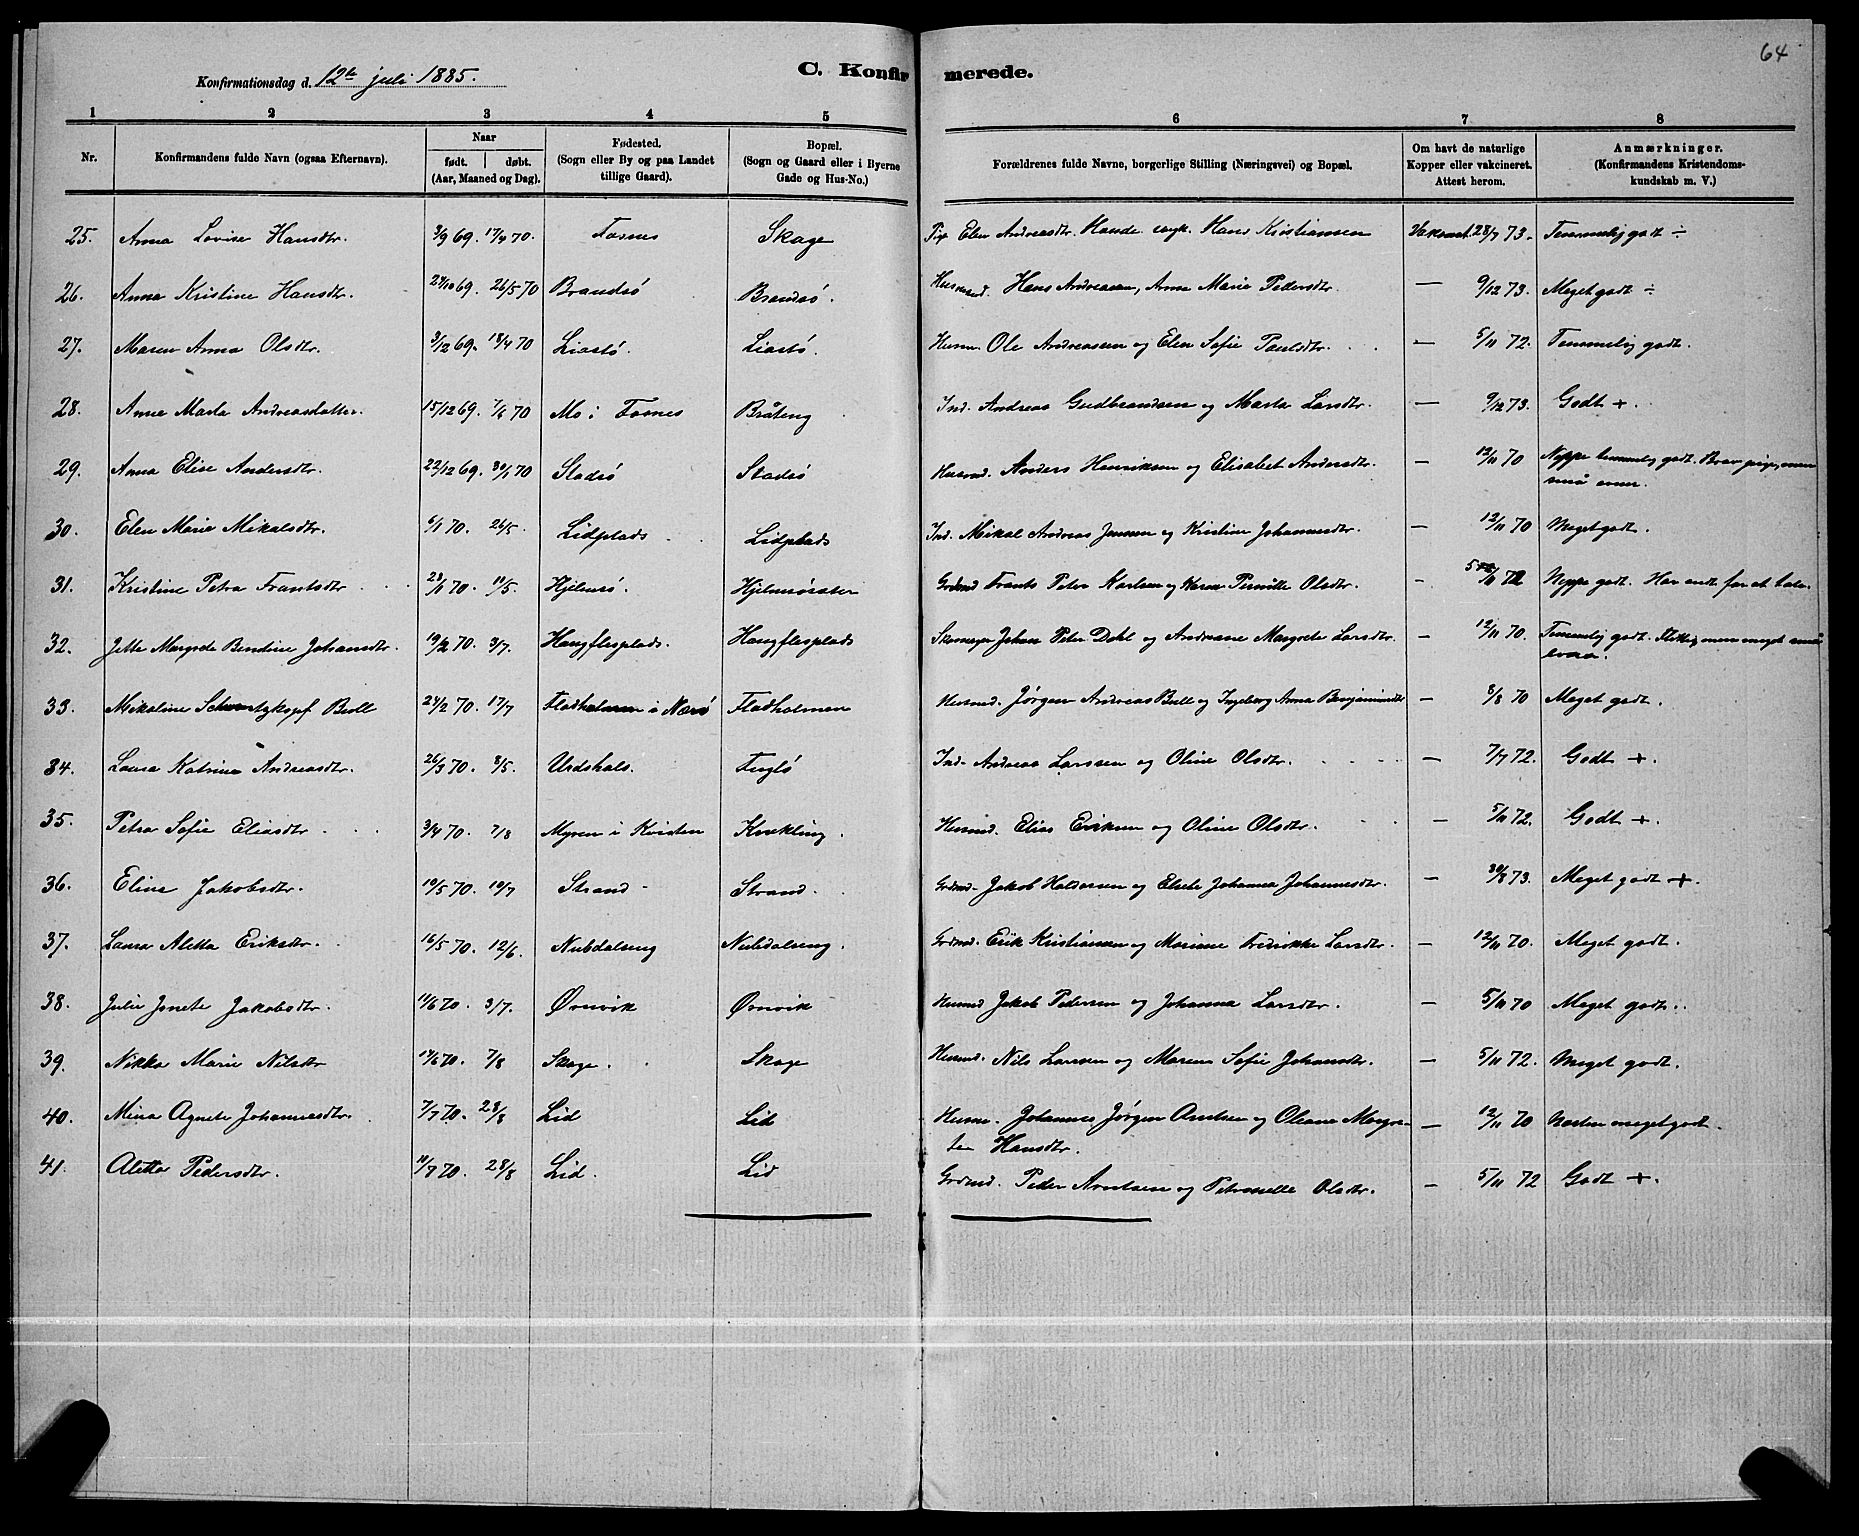 64
C. Konfirmerede.
Konfirmationsdag d. 12te juli 1885.
1 2 3 4 5 6 7 8
Nr. Konfirmandens fulde Navn (ogsaa Efternavn). Naar født. døbt. (Aar, Maaned og Dag). Fødested. (Sogn eller By og paa Landet tillige Gaard). Bopæl. (Sogn og Gaard eller i Byerne Gade og Hus-No.) Forældrenes fulde Navne, borgerlige Stilling (Næringsvei) og Bopæl. Om havt de naturlige Kopper eller vakcineret. Attest herom. Anmærkninger. (Konfirmandens Kristendomskundskab m. V.)
25. Anna Lovise Hansdtr. 3/9 69. 17/4 70. Fosnes Skage Elen Andreasdtr. Hans Kristiansen 28/7 73. Temmelig godt ÷
26. Anna Kristine Hansdtr. 24/10 69. 26/5 70 Brandsø Brandsø. Husmd. Hans Andreasen, Anna Marie Pedersdtr. — 9/12 73. Meget godt ÷
27. Maren Anna Olsdtr. 3/12 69. 18/4 70 Liastø. Liastø. Husm. Ole Andreassen og Elen Sofie Paulsdtr. — 5/11 72. Temmelig godt.
28. Anna Marta Andreasdatter. 15/12 69. 70 Mo i Fosnes Bråteng Ind. Andreas Gudbrandsen og Marta Larsdtr. — 9/12 73. Godt +.
29. Anna Elise Andersdtr. 22/12 69. 30/1 70 Stadsø Stadsø Husmd. Anders Henriksen og Elisabet Andersdtr. — 12/11 70 Neppe temmelig godt. Brav pige, men
små evner.
30. Elen Marie Mikalsdtr. 6/1 70. 26/5. Lidplads Lidplads Ind. Mikal Andreas Jensen og Kristine Johannesdtr. — 12/11 70 Meget godt.
31. Kristine Petra Frantsdtr 28/1 70. Hjelmsø. Hjelmsøsæter Grdmd Frants Peter Karlsen og Karen Pernille Olsdtr. - 72 Neppe godt. Har ondt for at tale.
32. Jette Margrete Bendine Johansdtr. 19/2 70. 3/7. Haugflesplads. Haugflesplads Johan Peter Dahl og Andreane Margrete Larsdtr. — 12/11 70. Temmelig godt. Flittig men meget små
evner.
33. Mikaline Schwartzkopf Bull 24/2 70. 17/7 Fladholmen i Nærø Fladholmen Husmd. Jørgen Andreas Bull og Ingeborg Anna Benjaminsdtr — 8/8 70 Meget godt.
34. Laura Katrine Andreasdtr. 26/3 70. 8/5. Urdshals. Fuglø Ind. Andreas Larssen og Oline Olsdtr. — 7/7 72. Godt +.
35. Petra Sofie Eliasdtr 3/4 70. 7/8 Myren i Kvisten Kvækling. Husmd. Elias Eriksen og Oline Olsdtr. — 5/11 72. Godt +.
36. Eline Jakobsdtr. 10/5 70. 10/7 Strand Strand. Grdmd. Jakob Haldorsen og Johanna Johannesdtr. — 30/8 73. Meget godt +.
37. Laura Aletta Eriksdtr. 16/5 70. 12/6. Nubdalseng Nubdalseng. Grdmd. Erik Kristiansen og Mariane Fredrikke Larsdtr. — 12/11 70. Meget godt.
38. Julie Jonete Jakobsdtr. 11/6 70. 3/7. Ørnvik Ørnvik Husmd Jakob Pedersen og Johanna Larsdtr. — 5/11 70 Meget godt.
39. Nikka Marie Nilsdtr 14/6 70. 7/8 Skage. Skage Husmd. Nils Larssen og Maren Sofie Johansdtr. — 5/11 72. Meget godt.
40. Mina Agnete Johannesdtr. 7/7 70. 28/8 Lid Lid Husm. Johannes Jørgen Arntsen og Oleana Margre-
te Hansdtr. — 12/11 70 Næsten meget godt.
41. Aletta Pedersdtr. 11/7 70. 28/8 Lid. Lid Grdmd. Peder Arntsen og Petronelle Olsdtr. — 5/11 72 Godt +.